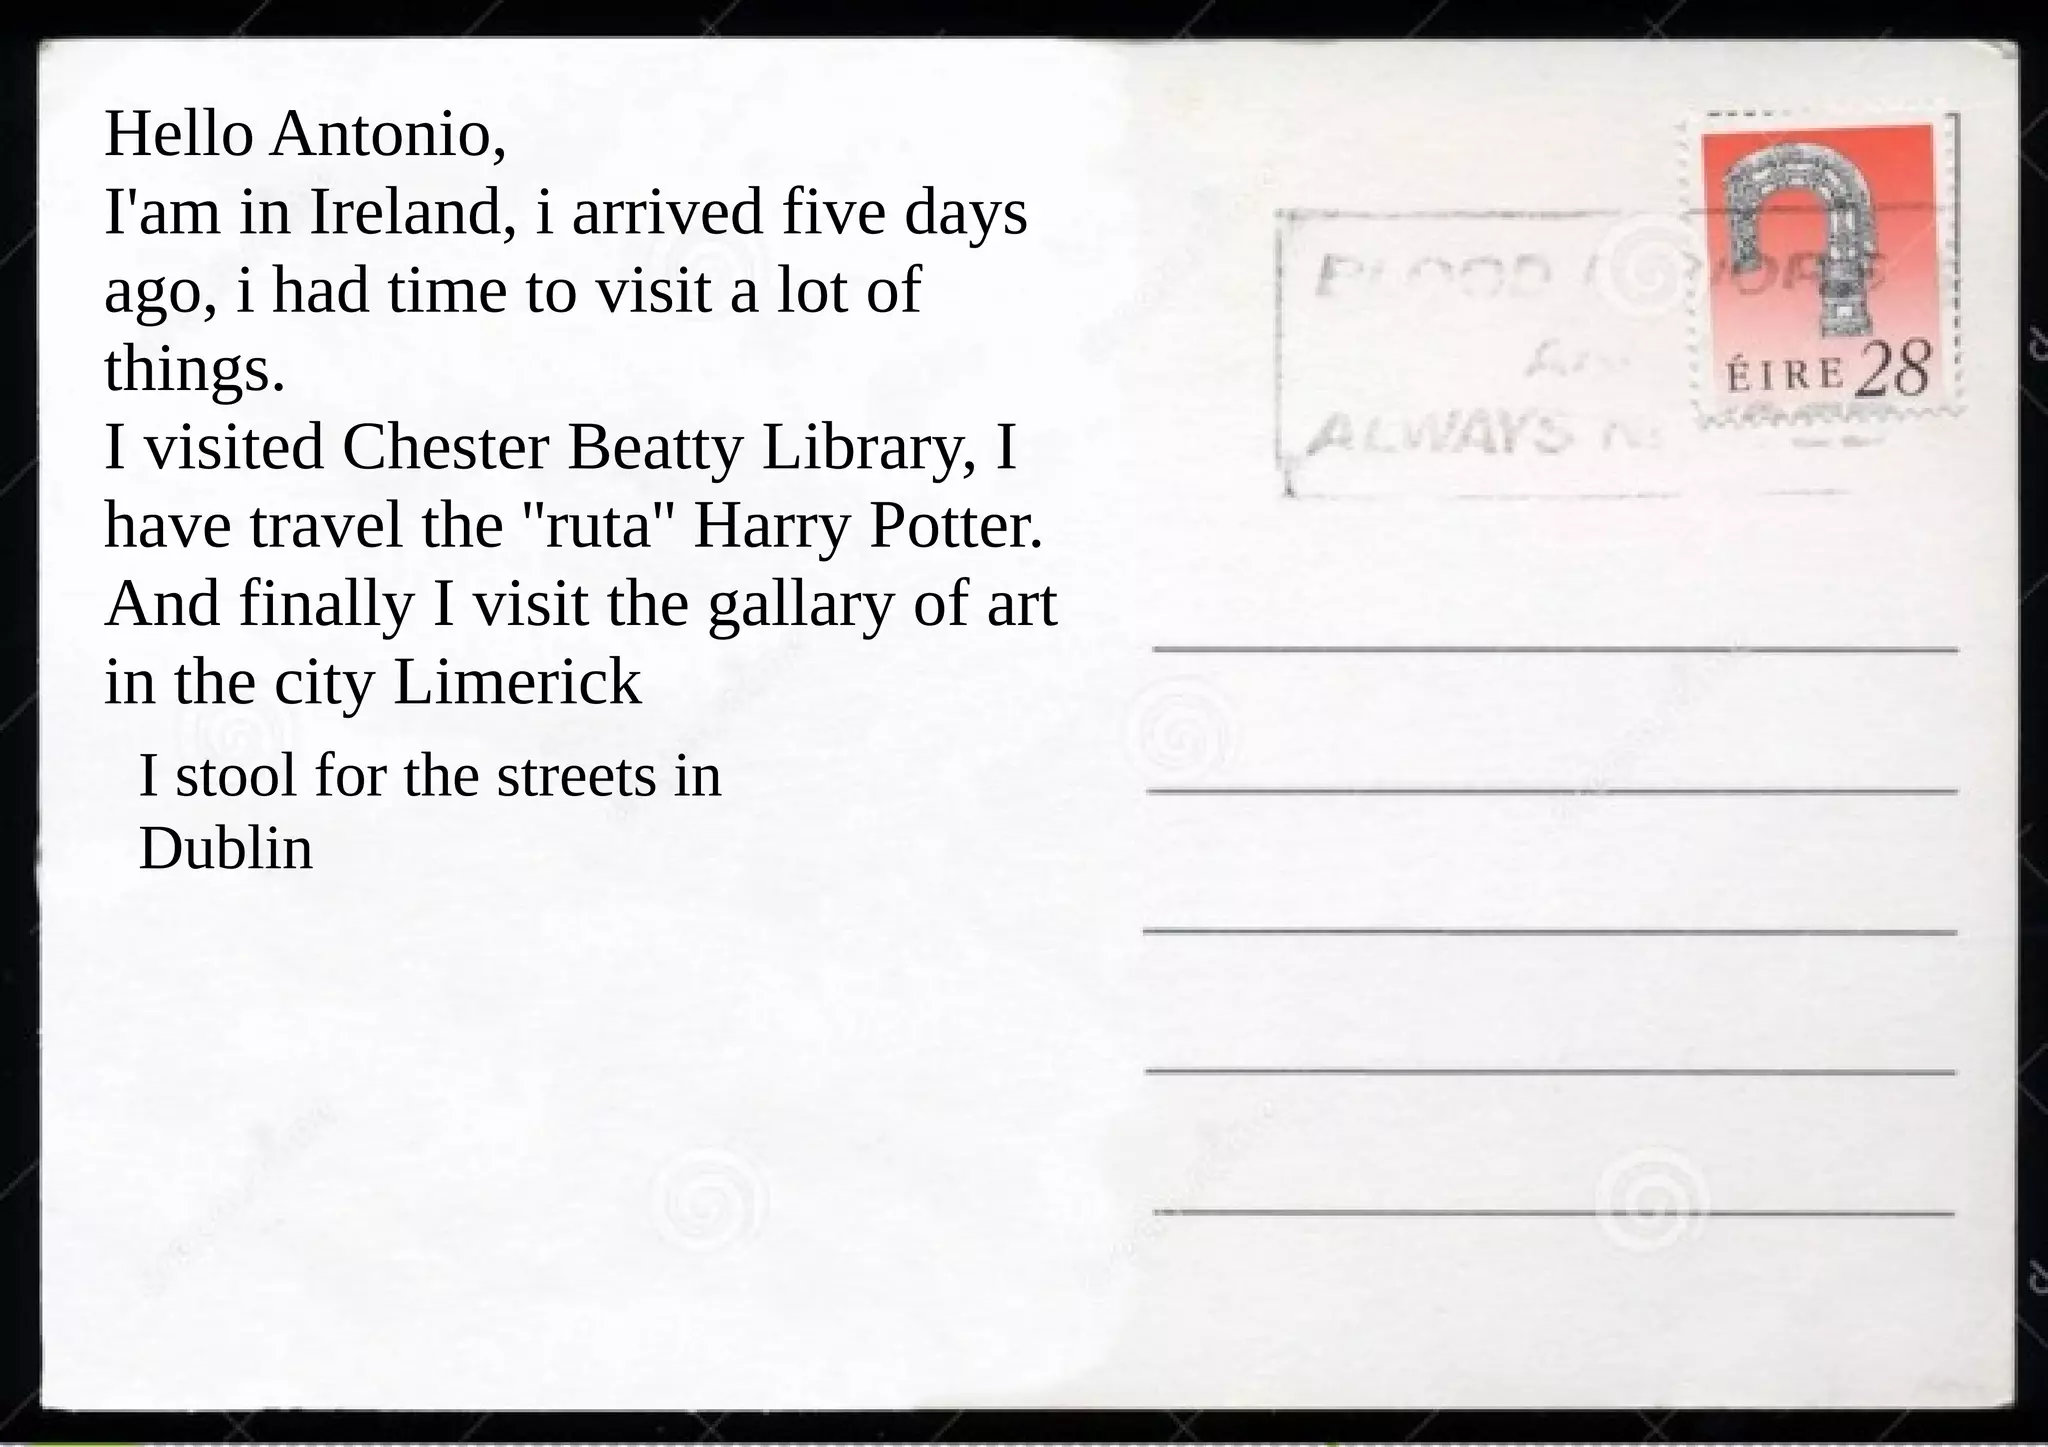 Hello Antonio,
I'am in Ireland, i arrived five days
ago, i had time to visit a lot of
things.
I visited Chester Beatty Library, I
have travel the "ruta" Harry Potter.
And finally I visit the gallary of art
in the city Limerick
I stool for the streets in
Dublin
BLOOD
ALWAYS
ÉIRE 28